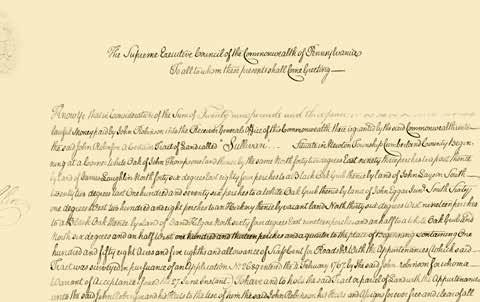 The Supreme Executive Council of the Commonwealth of Pennsylvania
To all to whom these presents shall Come Greeting
Know Ye that in Consideration of the Sum of Twenty nine pounds and
lawful Money paid by John Robinson into the Receiver Generals Office of this Commonwealth there is granted by the said Commonwealth unto
the said John Robinson a Certain Tract of Land called Sullivan Situate in Newton Township Cumberland County Beginning
at a Corner White Oak of John Thompsons land thence by the same North forty two degrees East ninety three perches to a post thence
by Land of James Laughlin North forty six degrees East eighty four perches to a Black Oak Grub thence by land of John South
twenty two degrees East One hundred and seventy six perches to a White Oak Grub thence by land of John South Sixty
one degrees West two hundred and eight perches to an Hickory thence by vacant land North thirty six degrees West nineteen perches
to a Black Oak thence by Land of North forty five degrees East nineteen perches and an half to a White Oak Grub and
North six degrees and an half West one hundred and thirteen perches and a quarter to the place of Beginning containing One
hundred and fifty eight Acres and five eighths and allowance of six P Cent for Roads &c With the Appurtenances (Which said
Tract was surveyed in pursuance of an Application No entered the 2 February 1767 by the said John Robinson for whom a
Warrant of Acceptance the 27 June Instant) To have and to hold the said Tract or parcel of Land with the Appurtenances
unto the said John Robinson and his Heirs to the Use of him the said John Robinson his Heirs and Assigns for ever free and clear of all